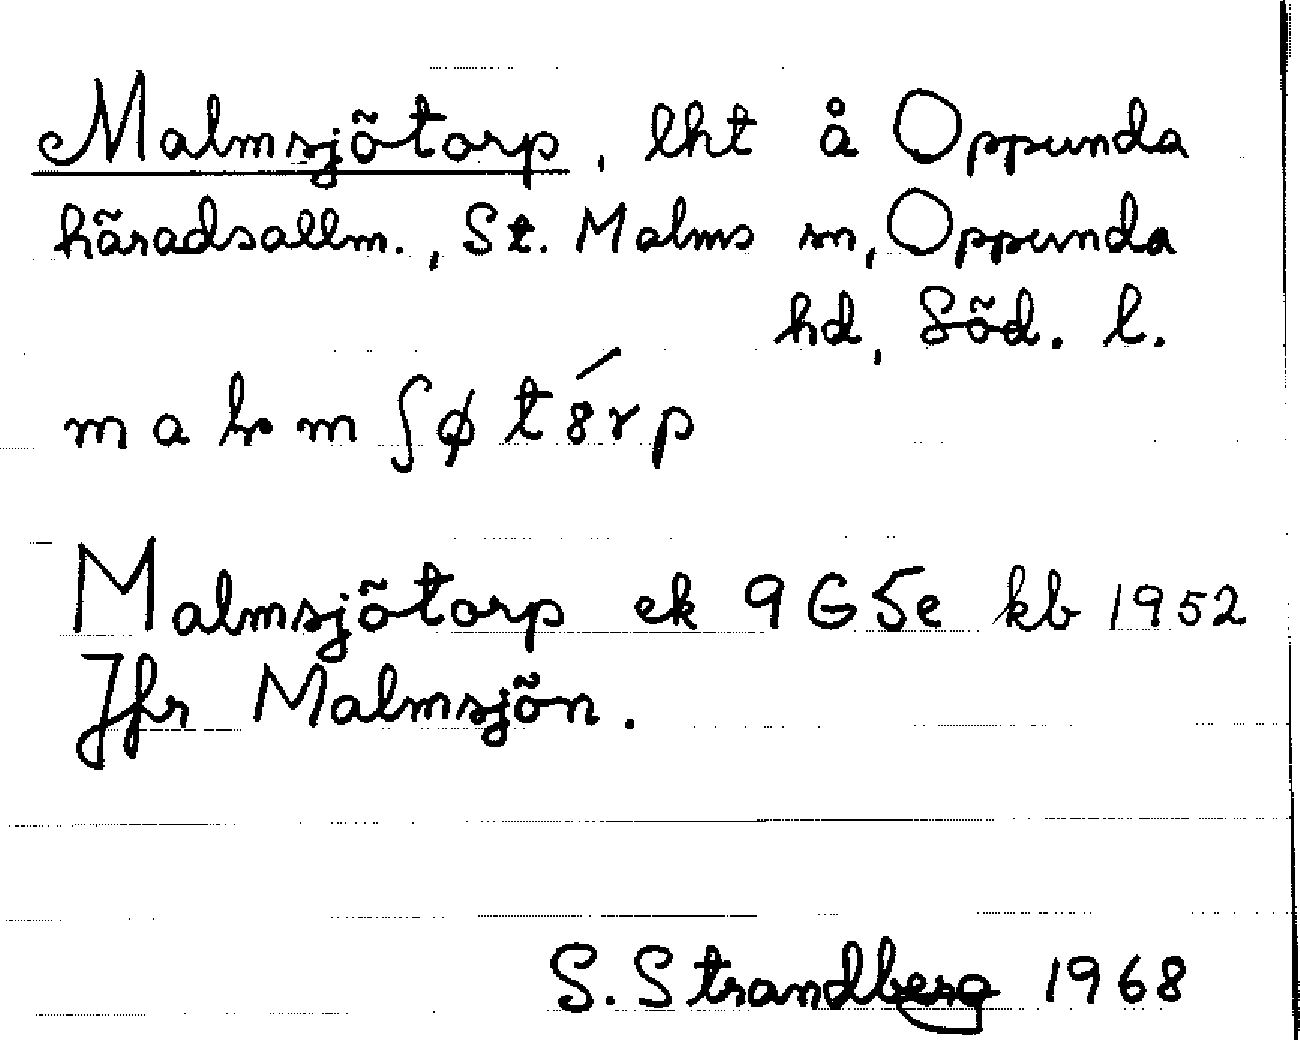 Malmsjötorp, lht å Oppunda
häradsallm., St. Malms sn, Oppunda
hd, Söd. l.
Malmsjötorp ek 9G5e kb 1952
Jfr Malmsjön.
S. Strandberg 1968